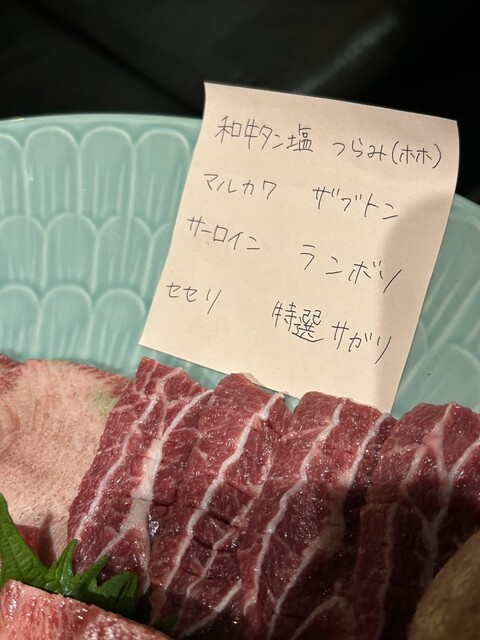 和牛タン塩 つらみ(ホホ)
マルカワ ザブトン
サーロイン ランボソ
セセリ 特選サガリ